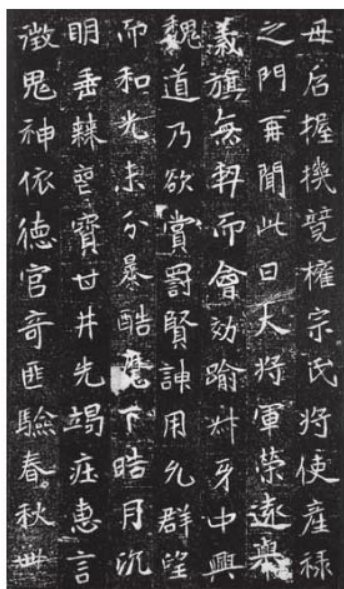 母后握機競權宗氏將使產祿
之門再聞此日大將軍榮遠舉
義旗無契而會効踰叔牙中興
魏道乃欲賞罰賢諫用允群望
而和光未分暴酷麾下晧月沉
明垂棘喪寶甘井先竭庄惠言
徵鬼神依德官奇匪驗春秋